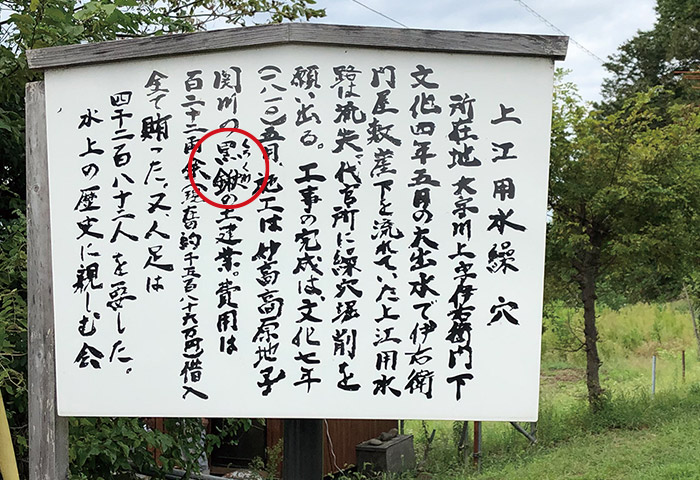 上江用水繰穴
所在地 大字川上字伊右衛門下
文化四年五月の大出水で伊右衛
門屋敷崖下を流れていた上江用水
路は流失。代官所に繰穴堀削を
願い出る。工事の完成は、文化七年
(一八一〇)五月、施工は妙高高原地子
関川の黒鍬の土建業。費用は
くろくわ
百二十二両余(現在の約千五百八十六万円)借入
全て賄った。又、人足は
四千二百八十三人を要した。
水上の歴史に親しむ会